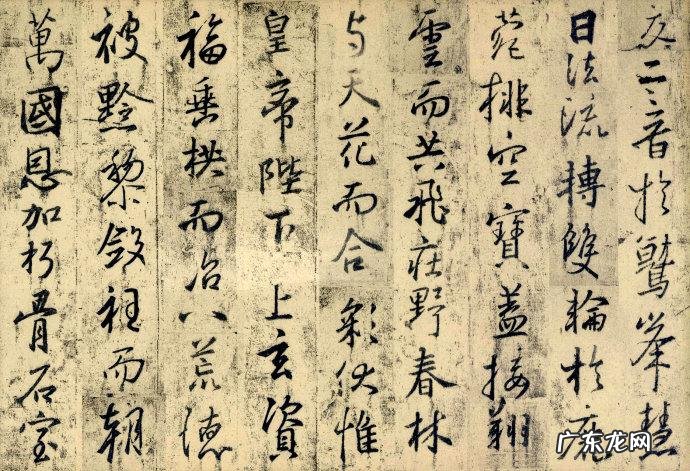 交二音於鷲峯慧
日法流轉雙輪於鹿
菀排空寶蓋接翔
雲而共飛莊野春林
与天花而合彩伏惟
皇帝陛下上玄資
福垂拱而治八荒德
被黔黎斂衽而朝
萬國恩加朽骨石室
广东龙网